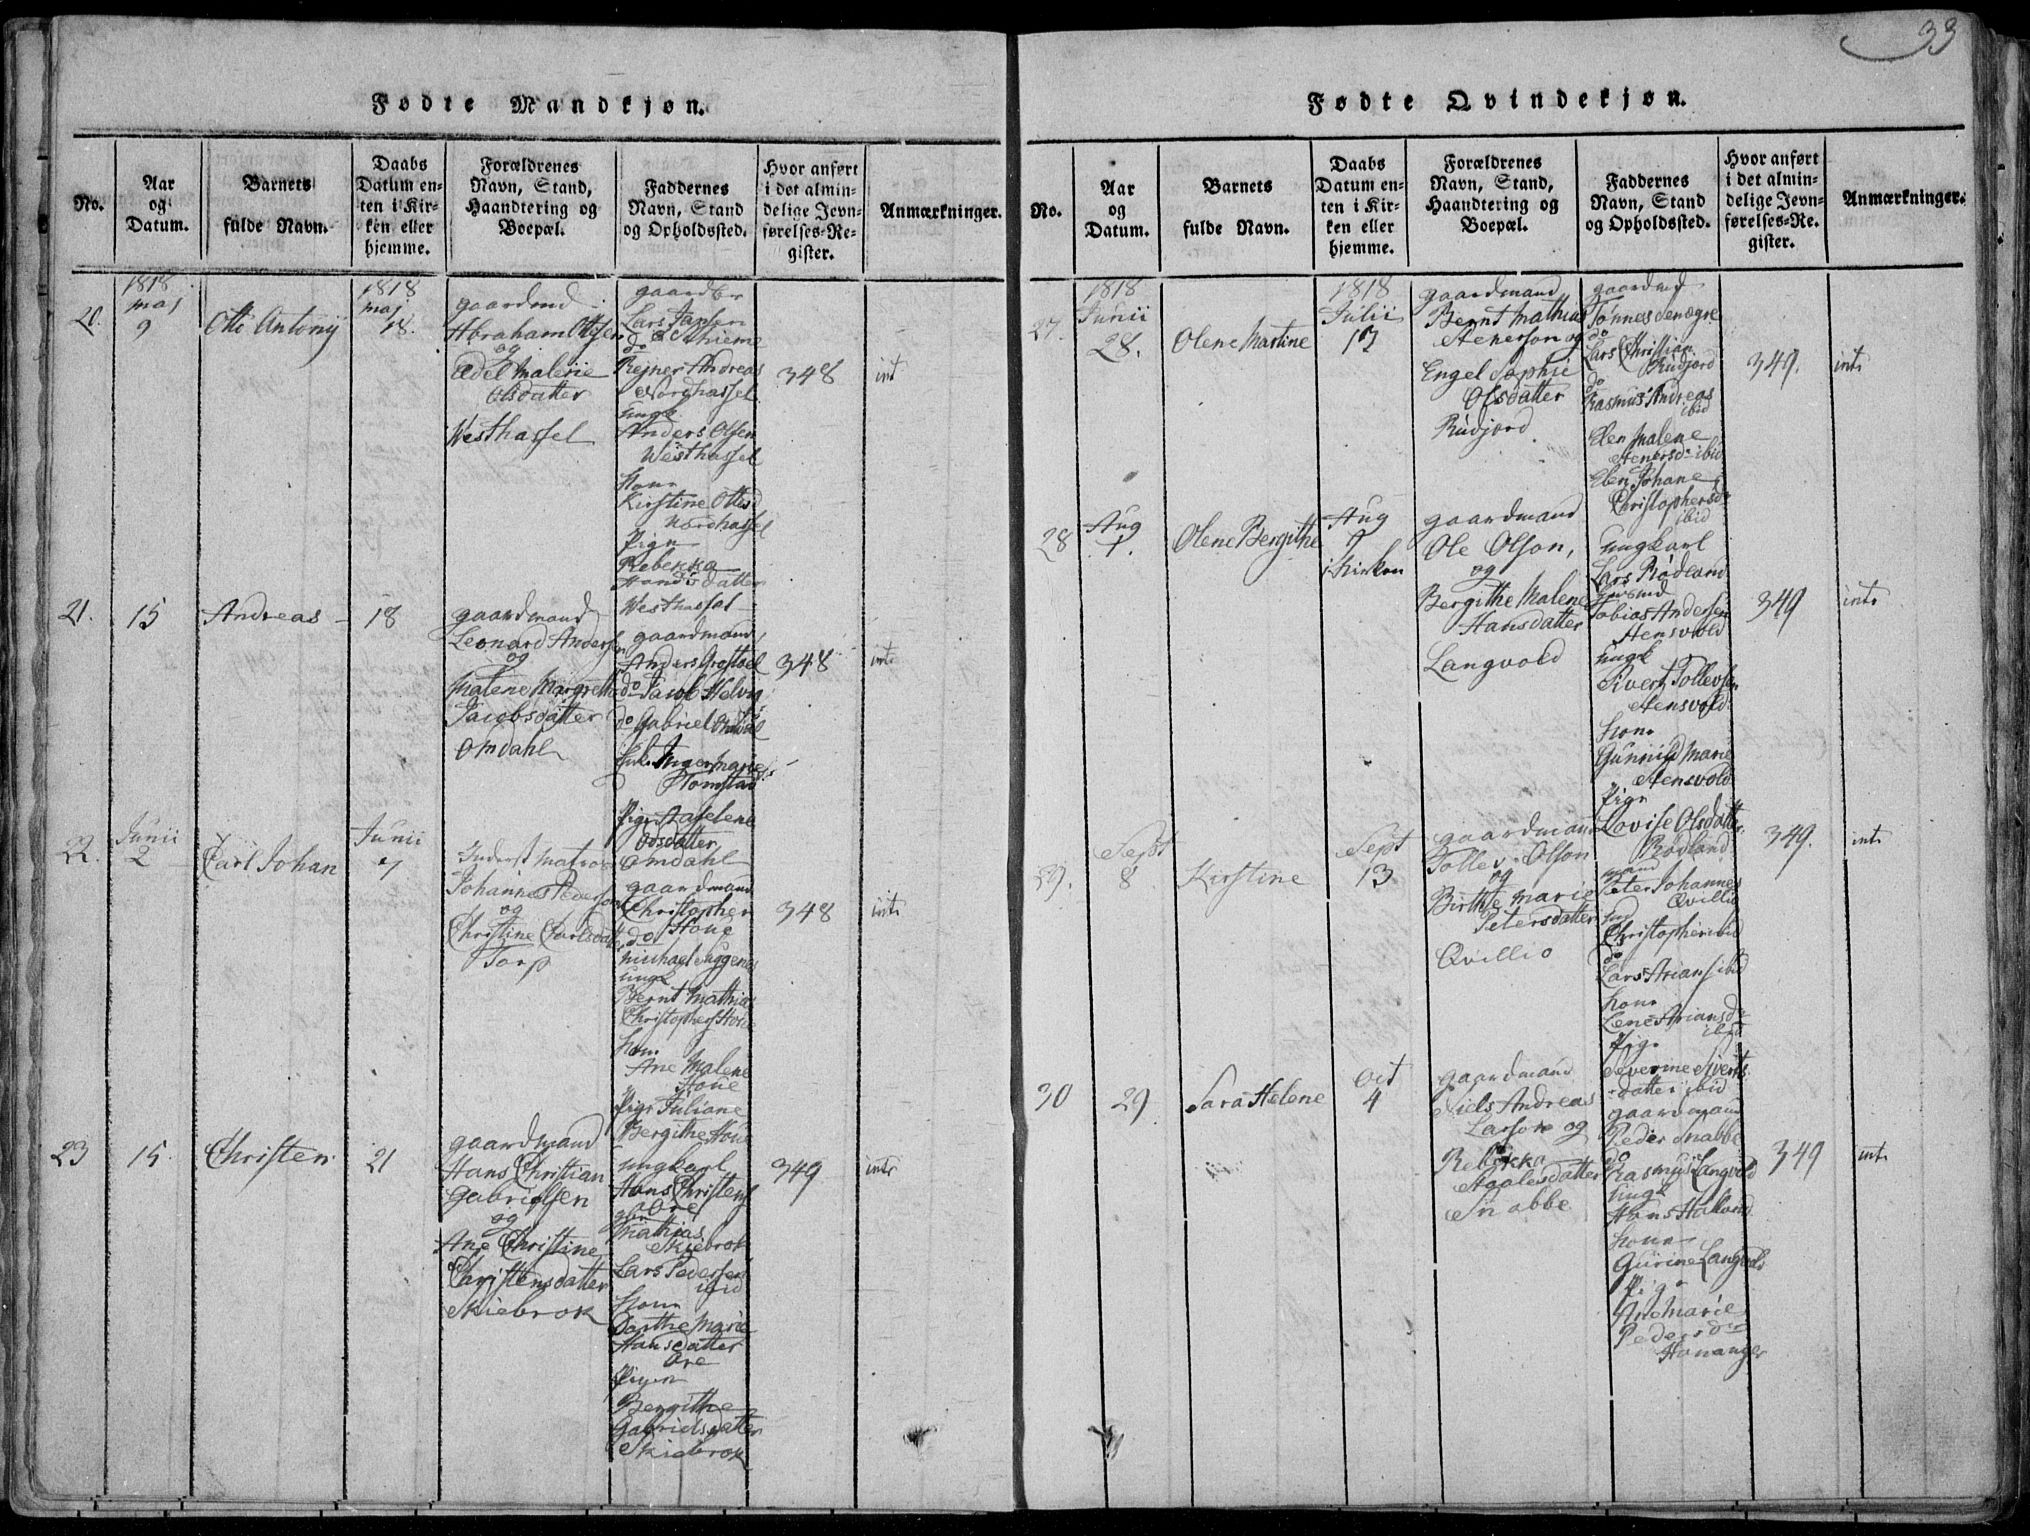 33
Fødte Mandkjøn.
No.
Aar
og
Datum.
Barnets
fulde Navn.
Daabs
Datum en-
ten i Kir-
ken eller
hjemme.
Forældrenes
Navn, Stand,
Haandtering og
Boepæl.
Faddernes
Navn, Stand
og Opholdssted.
Hvor anført
i det almin-
delige Jevn-
førelses-Re-
gister.
Anmærkninger.
20.
1818
maj
9
Otto Antonij
1818
maj
18.
gaardmd
Abraham Ottsen
og
Adel Malene
Olsdatter
Westhassel
gaardbr
Lars Jansen
do
Rejner Andreas
Nordhassel
Ungk
Anders Olsen
Westhassel
Kone
Kirstine Ottesd
Nordhassel
Pige
Rebekka
Hansdatter
Westhassel
348
int
21.
15
Andreas
18
gaardmand
Leonard Andersen
og
Malene Margrethe
Jacobsdatter
Omdahl
gaardmand
Anders
do Jacob Helvig
do Gabriel Omdal
Enke Inger Marie
Tomstad
Pige Aaselene
Osdatter
Omdahl
348
int
22.
Junii
2
Carl Johan
Junii
7
Inderst Matros
Johannes Pedersen
og
Christine Carlsdatter
Torp
gaardmand
Christopher
Houe
do
michael
Ungk
Bernt Mathias
Christophers Houe
kone
Ane Malene
Houe
Pige Juliane
Bergithe Houe
348
int
23
15.
Christen
21
gaardmand
Hans Christian
Gabrielsen
og
Ane Christine
Christensdatter
Skiebrok
ungkarl
Hans Christens
Ore
Mathias
Skiebrok
Lars Pedersen
ibid
Kone
Dorthe Marie
Hansdatter
Ore
Pigen
Bergithe
Gabrielsdatter
Skiebrok
349
int
Fødte Qvindekjøn.
No.
Aar
og
Datum.
Barnets
fulde Navn.
Daabs
Datum en-
ten i Kir-
ken eller
hjemme.
Forældrenes
Navn, Stand,
Haandtering og
Boepæl.
Faddernes
Navn, Stand
og Opholdssted.
Hvor anført
i det almin-
delige Jevn-
førelses-Re-
gister.
Anmærkninger.
27.
1818
Junii
28.
Olene Martine
1818
Julii
17
gaardmand
Bernt Mathias
Atenerson og
Engel Sophie
Olsdatter
Rudjord
gaardmd
Tönnes
do
Lars Christian
Rudjord
do
Rasmus Andreas
ibid
Elen Malene
ibid
Elen Johane
Christophersd
ibid
349.
int
28
Aug
1.
Olene Bergithe
Aug
9
i Kirken
gaardmand
Ole Olson,
og
Bergithe Malene
Hansdatter
Langvold
Ungkarl
Lars Rödland
Tobias Andersen
Aensvold
Ungk
Sivert Tollevsen
Aensvold
Kone
Gunnild Marie
Aensvold
Pige
Lovise Olsdatter
Rödland
349
int
29.
Sept
8
Kirstine
Sept
13
gaardmand
Tollev Olson
og
Birthe Marie
Petersdatter
Qvillio
mand
Peter Johannes
Qvillio
Christopher ibid
do
Lars Arians ibid
kone
Lene Ariansd
ibid
Pige
Severine Siverts
datter ibid
349.
int
30
29.
Sara Helene
Oct
4
gaardmand
Niels Andreas
Larson og
Rebekka
Aanensdatter
Snabbe
gaardmand
Peder Snabbe
do
Rasmus Langvold
Ungk
Hans
Kone
Gurine Langvold
Pige
Ane Marie
Pedersd
Hananger
349
int